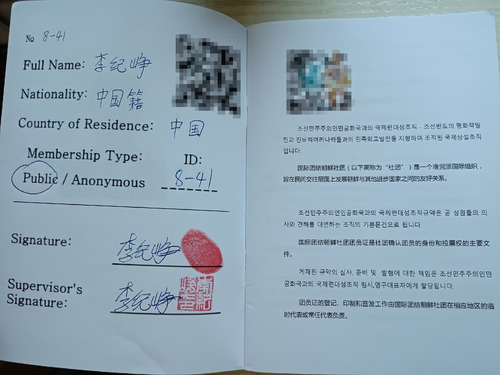 № 8-41
Full Name: 李纪峥
Nationality: 中国籍
Country of Residence: 中国
Membership Type: ID:
Public / Anonymous 8-41
Signature: 李纪峥
Supervisor's
Signature: 李纪峥
조선민주주의인민공화국과의 국제련대성조직 - 조선반도의 평화적발
전과 진보적여러나라들과의 친목외교발전을 지향하여 조직된 국제상설조직
입니다.
国际团结朝鲜社团（以下简称为“社团”）是一个准党派国际组织，
旨在民间交往层面上发展朝鲜与其他进步国家之间的友好关系。
조선민주주의인민공화국과의 국제련대성조직규약은 곧 성원들의 의
사와 견해를 대변하는 조직의 기본문건으로 됩니다.
国际团结朝鲜社团团员证是社团确认团员的身份和投票权的主要文
件。
게재된 규약의 심사, 준비 및 발행에 대한 책임은 조선민주주의인민
공화국과의 국제련대성조직 림시,영구대표자에게 할당됩니다.
团员证的登记、印制和签发工作由国际团结朝鲜社团在相应地区的临
时代表或常任代表负责。